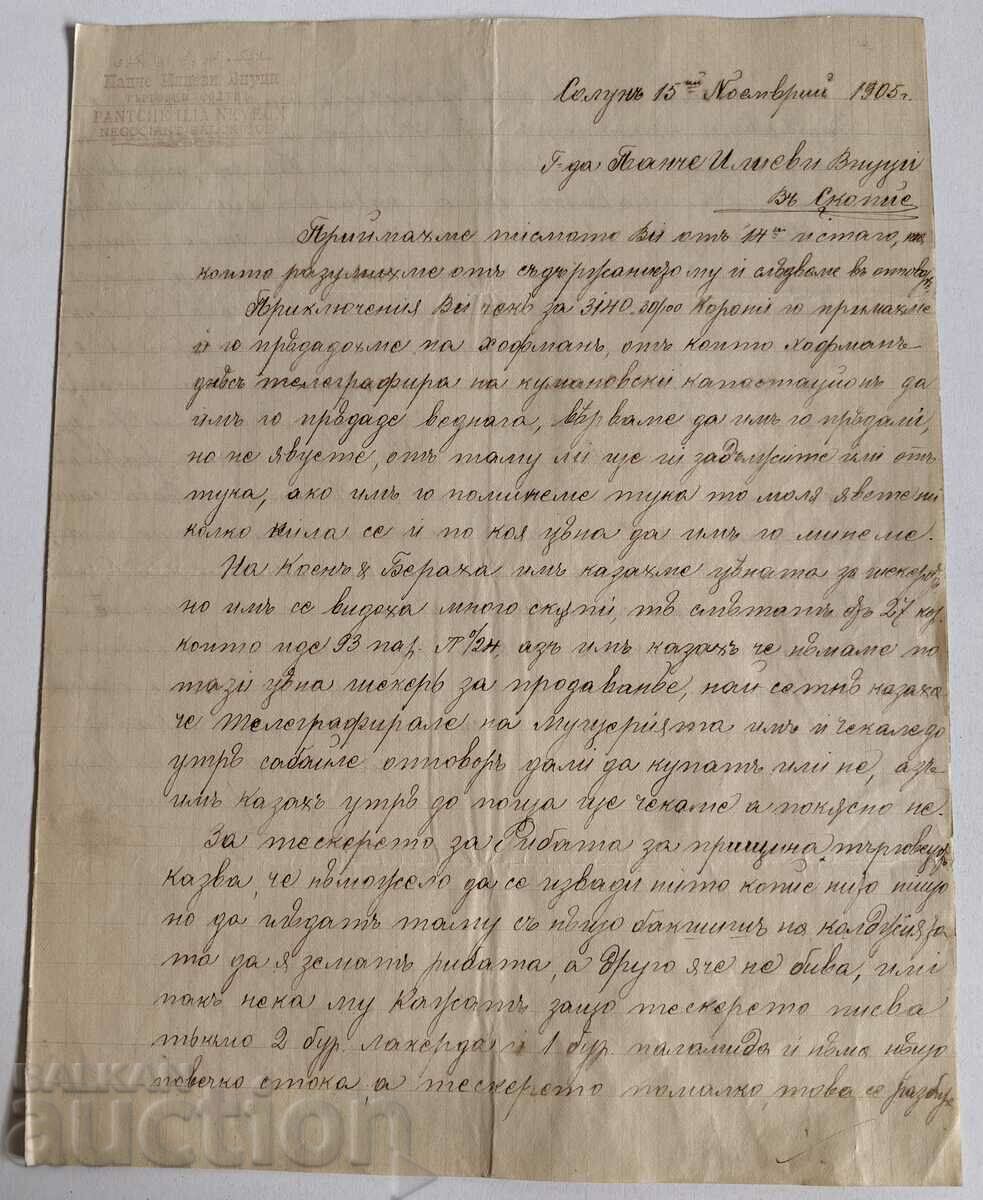 Панче Илиеви Внуци
PANTCHE ILIA NEVEON
Солунъ 15ий Ноемврий 1905г.
Г-да Панче Илиеви Внуци
Въ Скопие
Приймахме писмото Ви отъ 14й истаго,
който разумихме отъ съдържанието му и слѣдваме въ отговоръ
Приключения Ви чекъ за 3140 Корони го примахме
и го прѣдадохме на Хофманъ, отъ който Хофманъ
днѣсъ телеграфира на кумановский капостационъ да
имъ го прѣдаде веднага, вѣрваме да имъ го прѣдали,
но не явусте, отъ таму ли ще ги задължите или отъ
тука, ако имъ го поминеме тука то моля явете ни
колко кила се и по коя цѣна да имъ го минеме.
На Коенъ & Бераха имъ казахме цѣната за шекеръ
но имъ се видоха много скупи, тѣ смѣтатъ 27 кор.
който иде 93 пар. азъ имъ казахъ че нѣмаме по
тази цѣна шекеръ за продаванѣе, най сетнѣ казаха
че телеграфирале на мущерията имъ и чекале до
утрѣ сабайле отговоръ дали да купатъ или не, азъ
имъ казахъ утрѣ до поща ще чекаме а покясно не.
За тескерето за Рибата за прищина търговецъ
казва, че нѣможело да се извади нито копие нищо нищо
но да гледатъ таму съ нѣщо бакшишъ на колджия за
та да я зематъ рибата, а друго яче не бива, или
пакъ нека му кажатъ защо тескерето писва
тъкмо 2 бур. лакерда и 1 бур. паламида и нѣма нѣщо
повечко стока, а тескерето помалко, това се разбира
BALKAN
auction